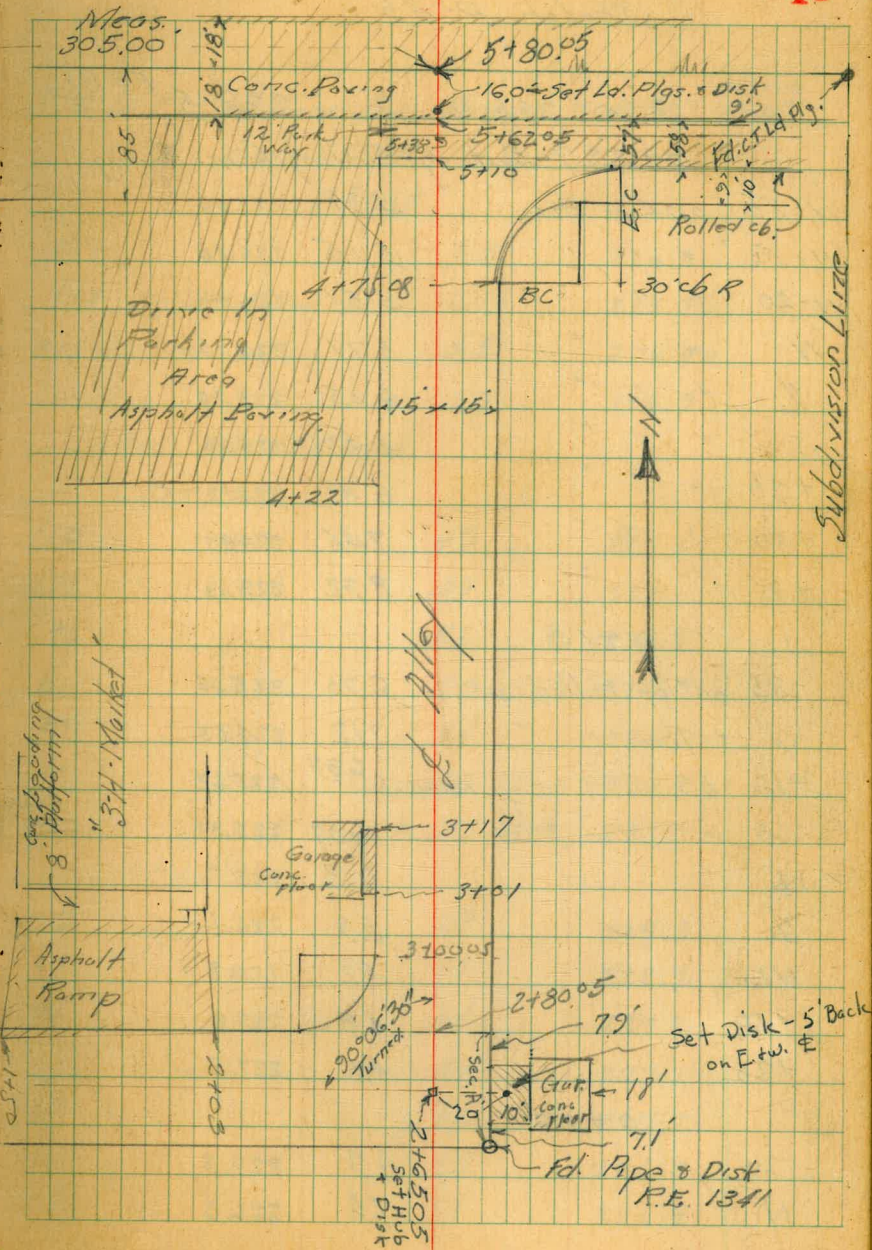 Meas.
305.00'
18' 18'
5+80.05
Conc. Paving
16.0' Set Ld. Plgs. & Disk
9'
Fd. C.T. Ld Plg.
85'
12' Park
way
5+38
5+62.05
57'
58'
5+10
9'
10'
E.C
Rolled cb.
4+75.08
BC
30' cb R
Drive In
Parking
Area
Asphalt Paving
15' 15'
N
Subdivision Line
4+22
Alley
"3-H-Market"
Conc. Loading
8' Platform
3+17
Garage
Conc.
Floor
3+01
3+00.05
Asphalt
Ramp
2+80.05
90°06'30"
Turned
7.9'
Set Disk - 5' Back
on E.+w. ℄
Sec.
Gar.
Conc
Floor
18'
10'
20
1+50
2+03
7.1'
2+65.05
Set Hub
+ Disk
Fd. Pipe & Disk
R.E. 1341